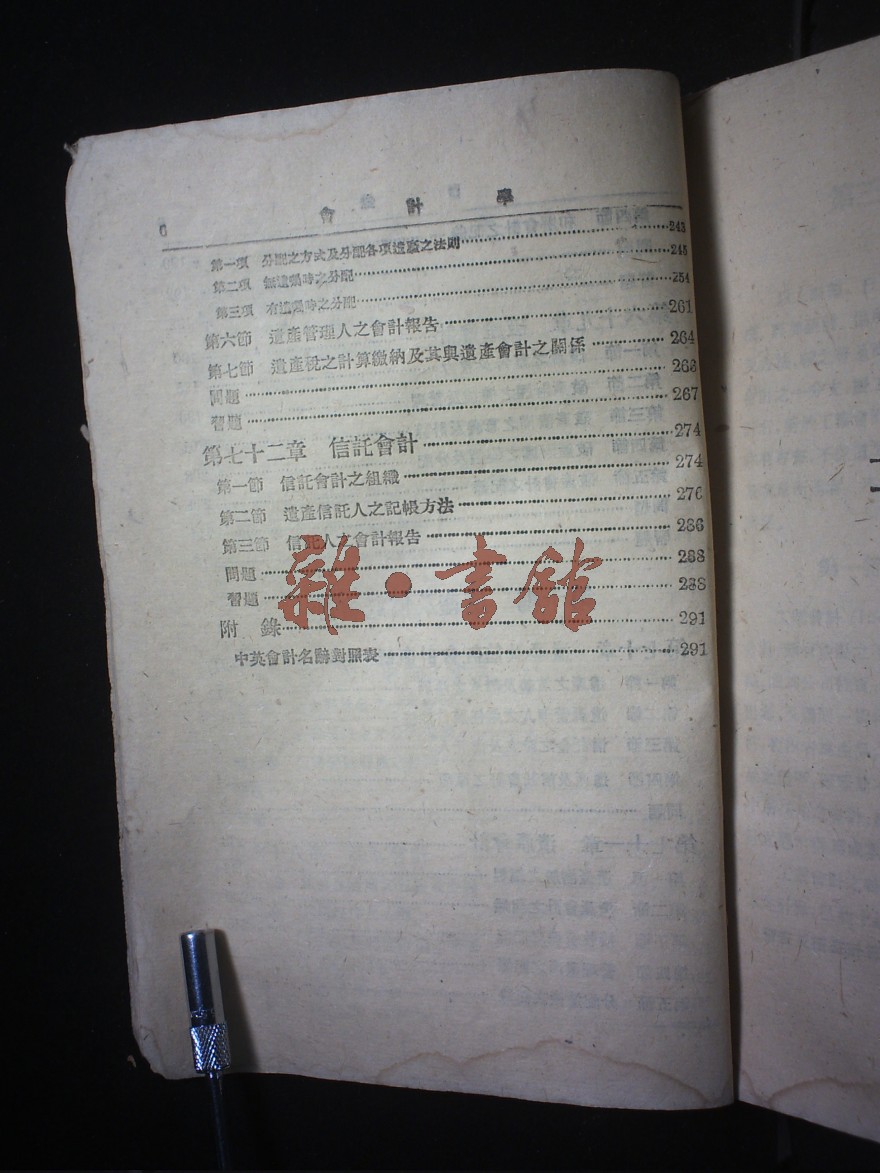 會計學
第一項 分配之方式及分配各項遺產之法則 243
第二項 無遺囑時之分配 245
第三項 有遺囑時之分配 254
第六節 遺產管理人之會計報告 261
第七節 遺產稅之計算繳納及其與遺產會計之關係 264
問題 266
習題 267
第七十二章 信託會計 274
第一節 信託會計之組織 274
第二節 遺產信託人之記帳方法 276
第三節 信託人之會計報告 286
問題 288
習題 288
附錄 291
中英會計名辭對照表 291
雜·書館